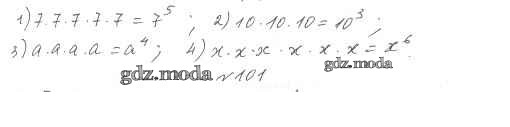 1) 7 · 7 · 7 · 7 · 7 = 7⁵ ; 2) 10 · 10 · 10 = 10³ ;
3) a · a · a · a = a⁴ ; 4) x · x · x · x · x · x = x⁶
gdz.moda
gdz.moda №101